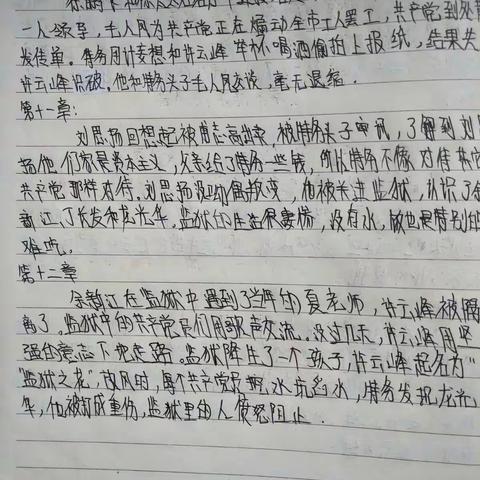 一人领导，毛人凤为共产党正在煽动全市工人罢工，共产党到处
发传单。特务用计妄想和许云峰举杯喝酒偷拍上报纸，结果失
许云峰识破。他和特务头子毛人凤交谈，毫无退缩。
第十一章：
刘思扬回想起被出来，被特务头子审讯，了解到刘
扬他们家是资本主义，父亲给了特务一些钱，所以特务不像对待
共产党那样对待。刘思扬没动摇叛变，他被关进监狱，认识了余
新江、丁长发和龙光华。监狱的生活很凄惨，没有水，饭也是特别的
难吃。
第十二章
余新江在监狱中遇到了当年的夏老师，许云峰被隔
离了。监狱中的共产党员们用歌声交流。没过几天，许云峰用坚
强的意志下地走路。监狱降生了一个孩子，许云峰起名为“
“监狱之花”放风时，每个共产党员挖水坑舀水，特务发现龙光
华，他被打成重伤，监狱里的人愤怒阻止．